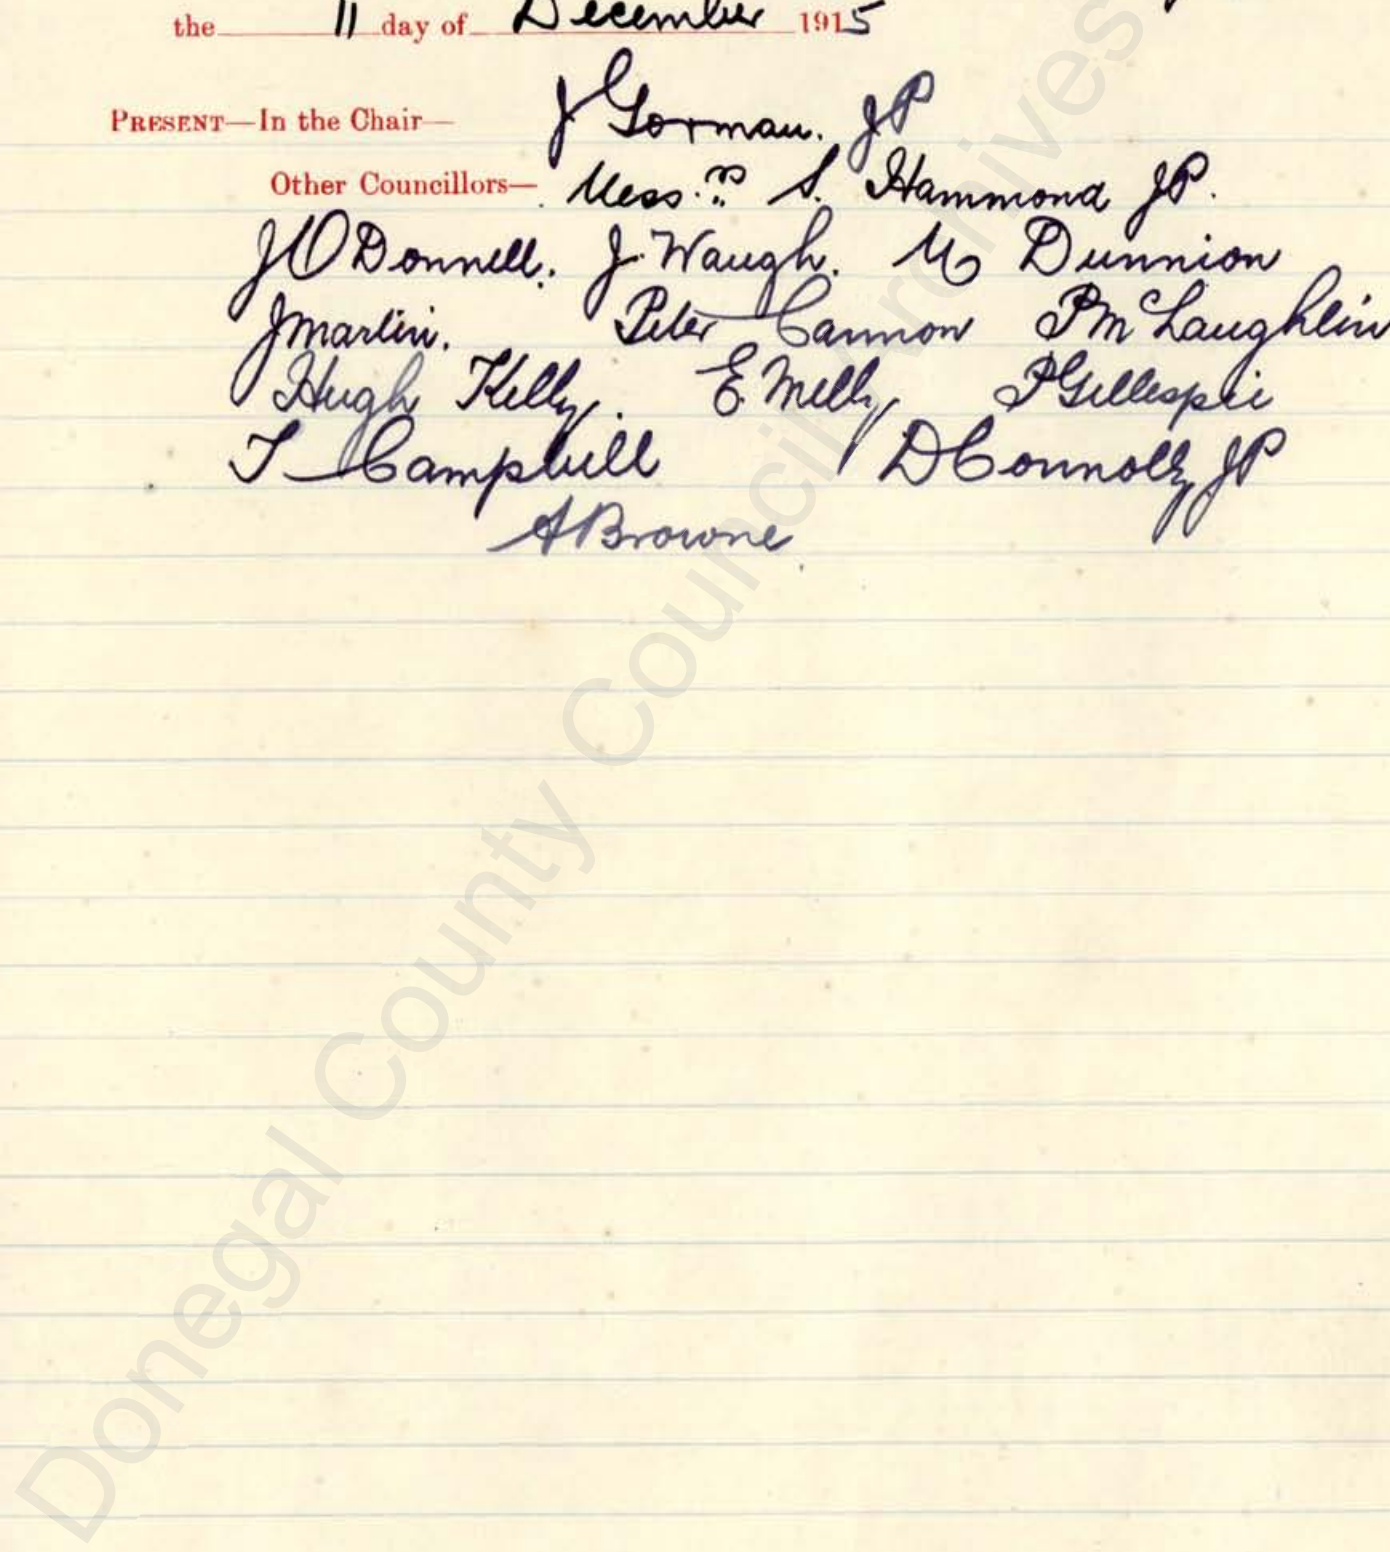 the 11 day of December 1915
PRESENT—In the Chair— J Gorman. JP
Other Councillors— Messrs S. Hammond JP.
J O Donnell. J. Waugh. M Dunnion
J Martin. Peter Cannon P McLaughlin
Hugh Kelly. E. Melly P Gillespie
T Campbell D Connolly JP
A Browne
Donegal County Council Archives